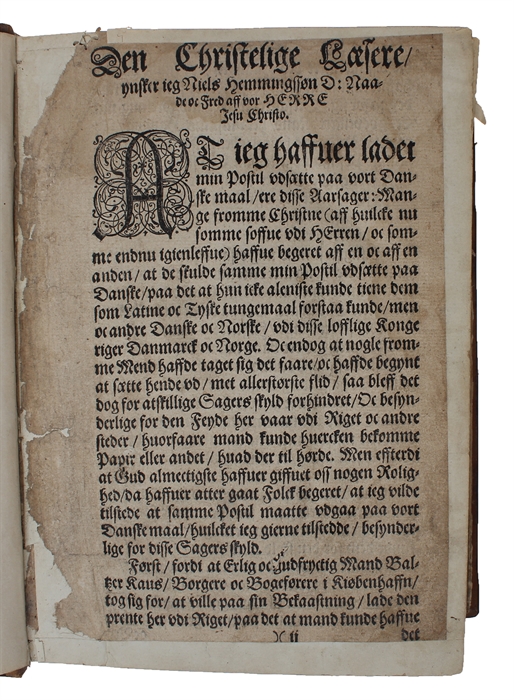 Den Christelige Læsere/
ynsker ieg Niels Hemmingsøn D: Naa-
de oc Fred aff vor HERRE
Jesu Christo.
AT ieg haffuer ladet
min Postil vdsætte paa vort Dan-
ske maal/ere disse Aarsager: Man-
ge fromme Christne (aff huilcke nu
somme soffue vdi HErren/ oc som-
me endnu igienleffue) haffue begeret aff en oc aff en
anden/ at de skulde samme min Postil vdsætte paa
Danske/paa det at hun icke aleniste kunde tiene dem
som Latine oc Tyske tungemaal forstaa kunde/men
oc andre Danske oc Norske/ vdi disse lofflige Konge
riger Danmarck oc Norge. Oc endog at nogle from-
me Mend haffde taget sig det faare/oc haffde begynt
at sætte hende vd/ met allerstørste flid/ saa bleff det
dog for atskillige Sagers skyld forhindret/ Oc besyn-
derlige for den Feyde her vaar vdi Riget oc andre
steder/ huorfaare mand kunde huercken bekomme
Papir eller andet/ huad der til hørde. Men effterdi
at Gud almectigste haffuer giffuet oss nogen Rolig-
hed/da haffuer atter gaat Folck begeret/ at ieg vilde
tilstede at samme Postil maatte vdgaa paa vort
Danske maal/huilcket ieg gierne tilstedde/ besynder-
lige for disse Sagers skyld.
Først/ fordi at Erlig oc Gudfryctig Mand Bal-
tzer Kaus/ Borgere oc Bogeførere i Kiøbenhaffn/
tog sig for/ at ville paa sin Bekaastning/ lade den
prente her vdi Riget/ paa det at mand kunde haffue
)( ii det